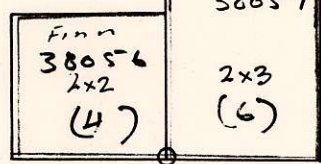 Finn
38056
2x2
(4)
2x3
(6)